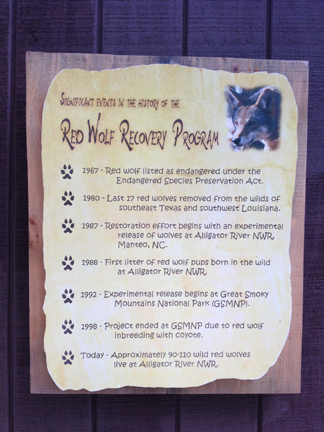 Significant events in the history of the
Red Wolf Recovery Program
1967 - Red wolf listed as endangered under the
Endangered Species Preservation Act.
1980 - Last 17 red wolves removed from the wilds of
southeast Texas and southwest Louisiana.
1987 - Restoration effort begins with an experimental
release of wolves at Alligator River NWR,
Manteo, NC.
1988 - First litter of red wolf pups born in the wild
at Alligator River NWR.
1992 - Experimental release begins at Great Smoky
Mountains National Park (GSMNP).
1998 - Project ended at GSMNP due to red wolf
inbreeding with coyote.
Today - Approximately 90-110 wild red wolves
live at Alligator River NWR.